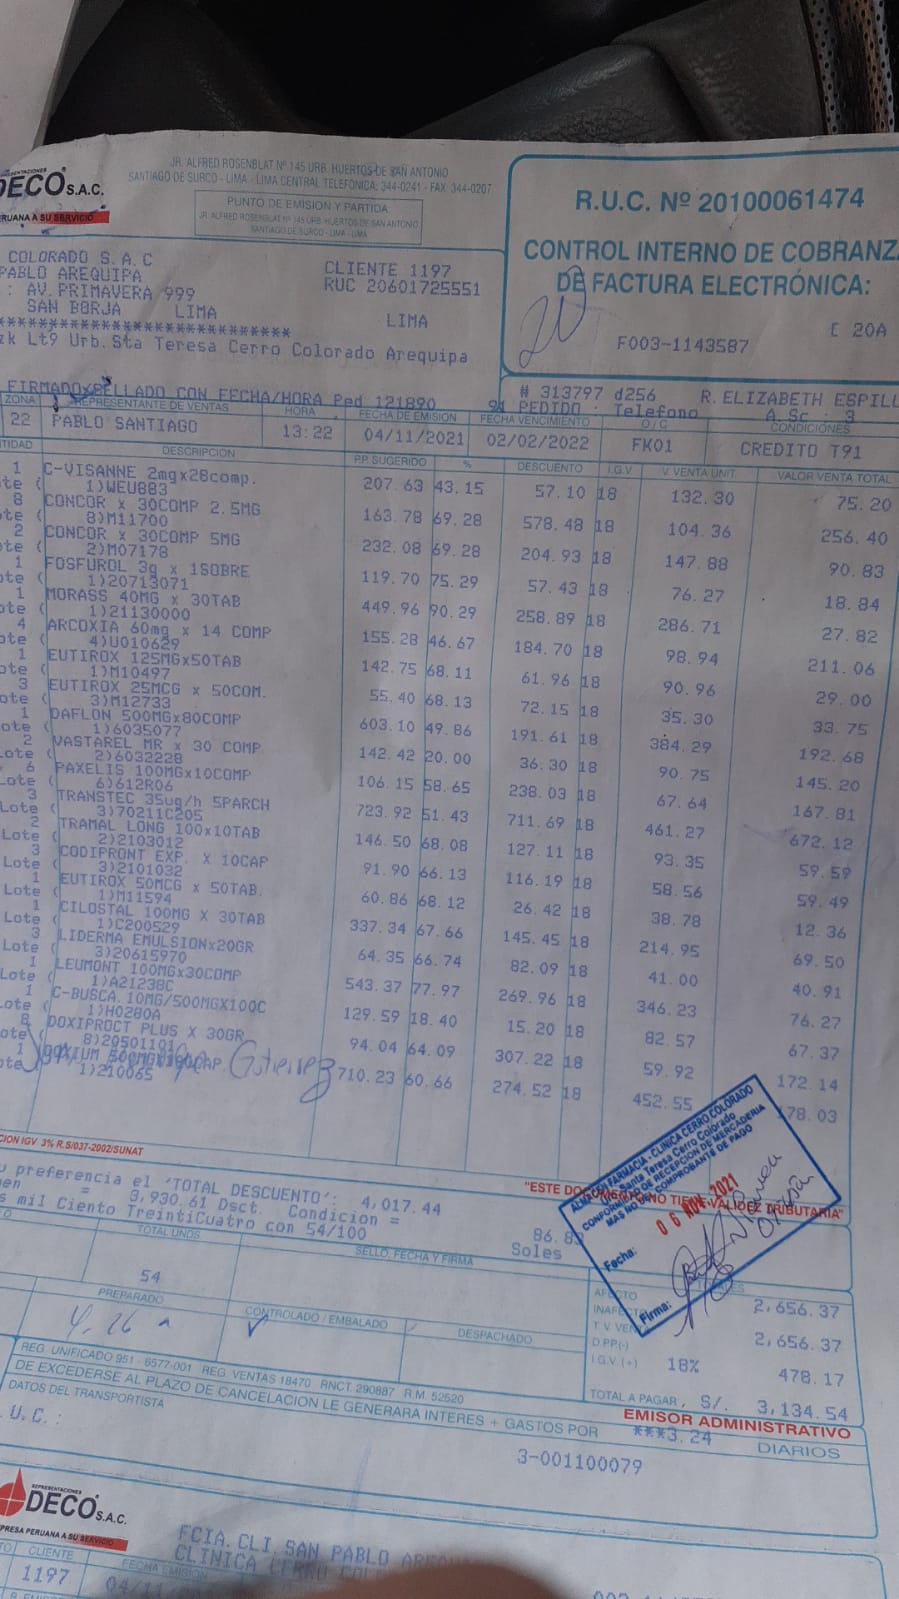 REPRESENTACIONES
DECO S.A.C.
PERUANA A SU SERVICIO
JR. ALFRED ROSENBLAT Nº 145 URB. HUERTOS DE SAN ANTONIO
SANTIAGO DE SURCO - LIMA - LIMA CENTRAL TELEFONICA: 344-0241 - FAX 344-0207
PUNTO DE EMISION Y PARTIDA
JR. ALFRED ROSENBLAT Nº 145 URB. HUERTOS DE SAN ANTONIO
SANTIAGO DE SURCO - LIMA - LIMA
R.U.C. Nº 20100061474
CONTROL INTERNO DE COBRANZA
DE FACTURA ELECTRÓNICA:
20
F003-1143587
[ 20A
COLORADO S.A.C
PABLO AREQUIPA
: AV. PRIMAVERA 999
SAN BORJA LIMA
CLIENTE 1197
RUC 20601725551
LIMA
****************************
zk Lt9 Urb. Sta Teresa Cerro Colorado Arequipa
FIRMADO SELLADO CON FECHA/HORA Ped 121890
# 313797 d256 R. ELIZABETH ESPILL
94 PEDIDO : Telefono A.Sc : 3
ZONA REPRESENTANTE DE VENTAS HORA FECHA DE EMISION FECHA VENCIMIENTO O/C CONDICIONES
22 PABLO SANTIAGO 13:22 04/11/2021 02/02/2022 FK01 CREDITO T91
TIDAD DESCRIPCIÓN P.P. SUGERIDO % DESCUENTO I.G.V V. VENTA UNIT. VALOR VENTA TOTAL
1 C-VISANNE 2mgx28comp. 207.63 43.15 57.10 18 132.30 75.20
ote ( 1)WEU883
8 CONCOR x 30COMP 2.5MG 163.78 69.28 578.48 18 104.36 256.40
ote ( 8)M11700
2 CONCOR x 30COMP 5MG 232.08 69.28 204.93 18 147.88 90.83
ote ( 2)M07178
1 FOSFUROL 3g x 1SOBRE 119.70 75.29 57.43 18 76.27 18.84
ote ( 1)20713071
1 MORASS 40MG x 30TAB 449.96 90.29 258.89 18 286.71 27.82
ote ( 1)21130000
4 ARCOXIA 60mg x 14 COMP 155.28 46.67 184.70 18 98.94 211.06
ote ( 4)U010629
1 EUTIROX 125MGx50TAB 142.75 68.11 61.96 18 90.96 29.00
ote ( 1)M10497
3 EUTIROX 25MCG x 50COM. 55.40 68.13 72.15 18 35.30 33.75
ote ( 3)M12733
1 DAFLON 500MGx80COMP 603.10 49.86 191.61 18 384.29 192.68
Lote ( 1)6035077
2 VASTAREL MR x 30 COMP 142.42 20.00 36.30 18 90.75 145.20
Lote ( 2)6032228
6 PAXELIS 100MGx10COMP 106.15 58.65 238.03 18 67.64 167.81
Lote ( 6)612R06
3 TRANSTEC 35ug/h 5PARCH 723.92 51.43 711.69 18 461.27 672.12
Lote ( 3)70211C205
2 TRAMAL LONG 100x10TAB 146.50 68.08 127.11 18 93.35 59.59
Lote ( 2)2103012
3 CODIFRONT EXP. X 10CAP 91.90 66.13 116.19 18 58.56 59.49
Lote ( 3)2101032
1 EUTIROX 50MCG x 50TAB. 60.86 68.12 26.42 18 38.78 12.36
Lote ( 1)M11594
1 CILOSTAL 100MG X 30TAB 337.34 67.66 145.45 18 214.95 69.50
Lote ( 1)C200529
3 LIDERMA EMULSIONx20GR 64.35 66.74 82.09 18 41.00 40.91
Lote ( 3)20615970
1 LEUMONT 100MGx30COMP 543.37 77.97 269.96 18 346.23 76.27
Lote ( 1)A21238C
1 C-BUSCA.10MG/500MGX100C 129.59 18.40 15.20 18 82.57 67.37
Lote ( 1)H0280A
8 DOXIPROCT PLUS X 30GR 94.04 64.09 307.22 18 59.92 172.14
ote ( 8)20501101
1 DOXIUM 500MGX100CAP 710.23 60.66 274.52 18 452.55 178.03
ote 1)210065
Gutierrez
CION IGV 3% R.S/037-2002/SUNAT
"ESTE DOCUMENTO NO TIENE VALIDEZ TRIBUTARIA"
u preferencia el 'TOTAL DESCUENTO': 4,017.44
en = 3,930.61 Dsct. Condicion = 86.83
s mil Ciento TreintiCuatro con 54/100 Soles
ALMACEN FARMACIA - CLINICA CERRO COLORADO
Santa Teresa Cerro Colorado
CONFORMIDAD DE RECEPCION DE MERCADERIA
MAS NO DE COMPROBANTE DE PAGO
Fecha: 06 NOV. 2021
Firma:
TOTAL UNDS SELLO, FECHA Y FIRMA
54
PREPARADO CONTROLADO / EMBALADO DESPACHADO
AFECTO 2,656.37
INAFECTO
T. V. VENTA 2,656.37
D.PP(-)
I.G.V.(+) 18% 478.17
TOTAL A PAGAR, S/. 3,134.54
EMISOR ADMINISTRATIVO
REG. UNIFICADO 951 - 6577-001 REG. VENTAS 18470 RNCT. 290887 R.M. 52620
DE EXCEDERSE AL PLAZO DE CANCELACION LE GENERARA INTERES + GASTOS POR ***3.24 DIARIOS
DATOS DEL TRANSPORTISTA
. U.C.:
3-001100079
REPRESENTACIONES
DECO S.A.C.
PRESA PERUANA A SU SERVICIO
FCIA.CLI.SAN PABLO
CLINICA CERRO
CLIENTE FECHA EMISION
1197 04/11